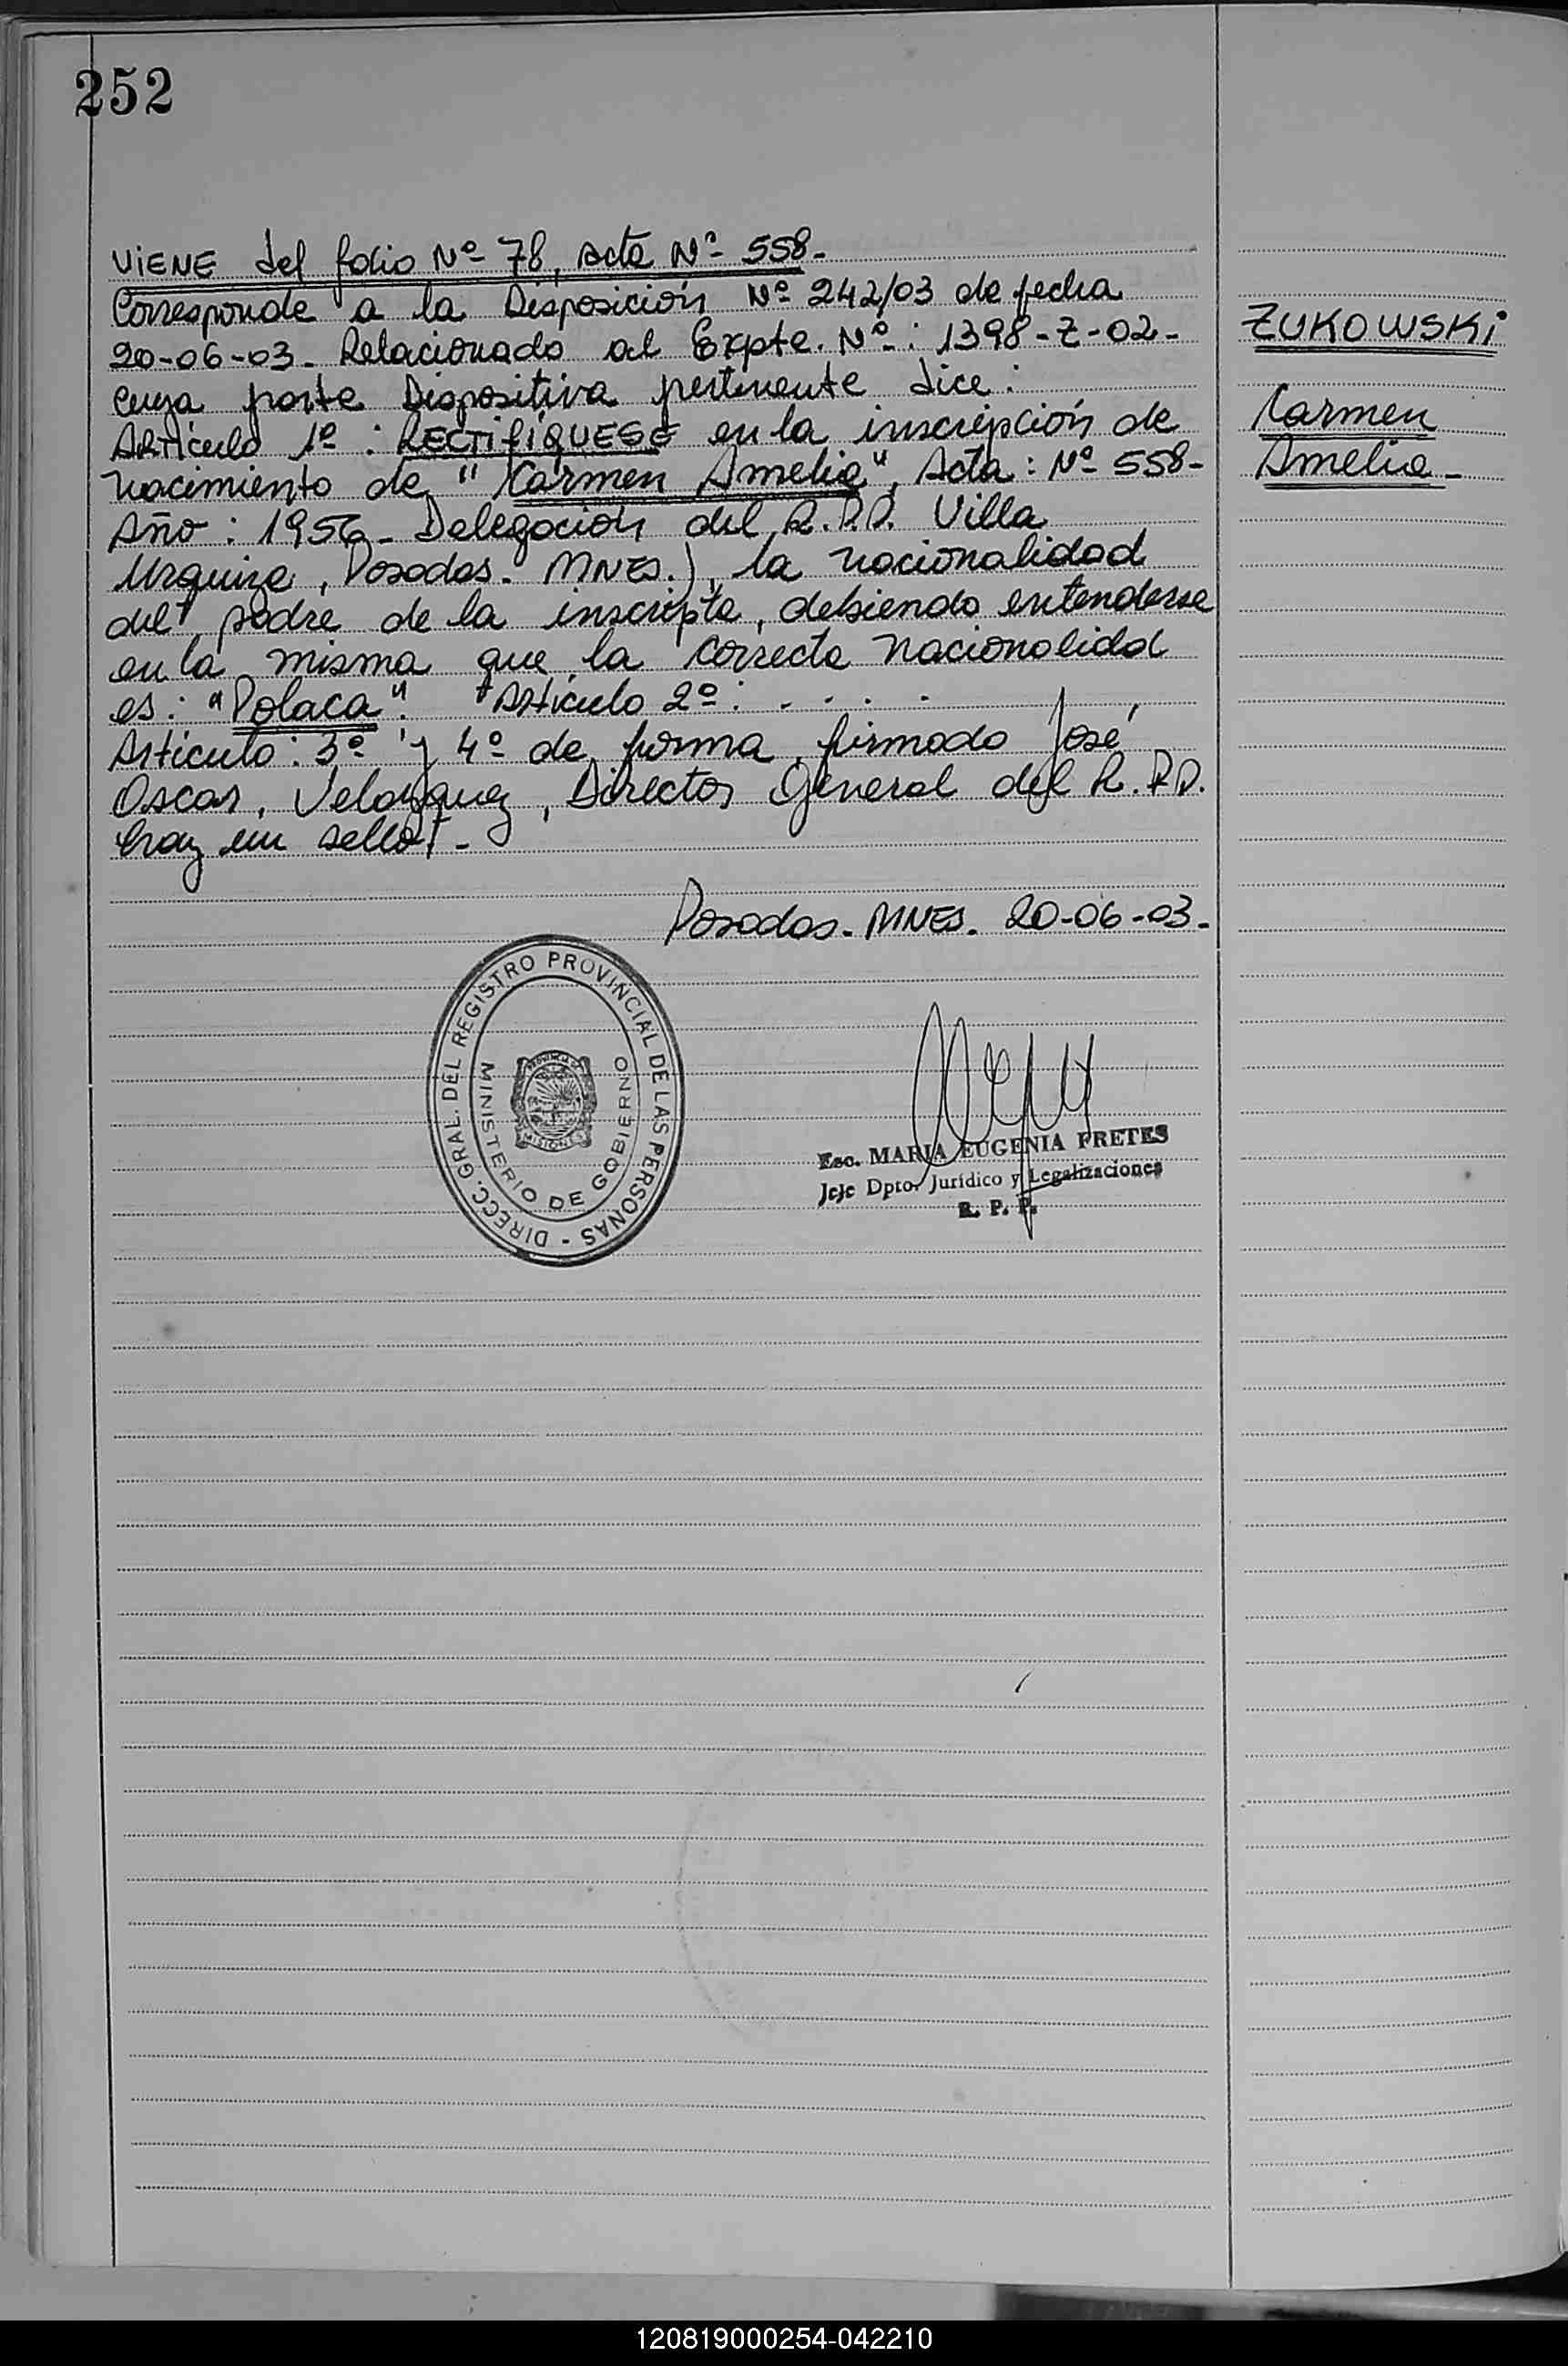 252
VIENE del folio Nº 78, acta Nº 558-
Corresponde a la Disposición Nº 242/03 de fecha
20-06-03- Relacionado al Expte. Nº: 1398-Z-02-
cuya parte Dispositiva pertinente dice:
Artículo 1º: RECTIFÍQUESE en la inscripción de
nacimiento de "Carmen Amelia", Acta: Nº 558-
Año: 1956- Delegación del R.P.P. Villa
Urquiza, Posadas- MNES.), la nacionalidad
del padre de la inscripta, debiendo entenderse
en la misma que la correcta nacionalidad
es: "Polaca". Artículo 2º: . . . .
Artículo: 3º y 4º de forma, firmado José
Oscar, Velazquez, Director General del R.P.P.
hay un sello-
Posadas- MNES. 20-06-03-
ZUKOWSKi
Carmen
Amelia-
DIRECC. GRAL. DEL REGISTRO PROVINCIAL DE LAS PERSONAS -
MINISTERIO DE GOBIERNO
PROVINCIA DE
MISIONES
Esc. MARIA EUGENIA FRETES
Jefe Dpto. Jurídico y Legalizaciones
R. P. P.
120819000254-042210